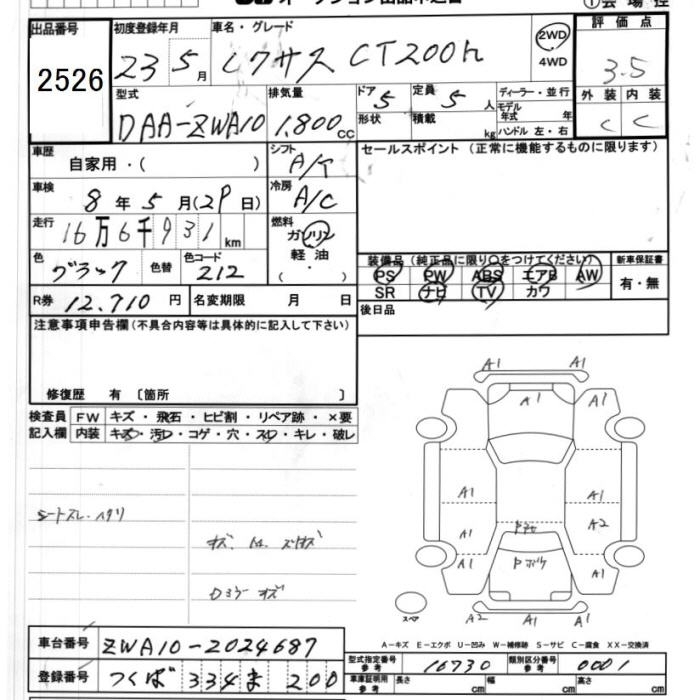 オークション出品申込書
①会場控
出品番号 2526
初度登録年月 23 5月
車名・グレード レクサス CT200h
2WD 4WD
評価点 3.5
外装 内装
C C
型式 DAA-ZWA10
排気量 1,800cc
ドア 5
定員 5人
形状 積載 kg
ディーラー・並行
モデル年式 年
ハンドル 左・右
車歴 自家用・( )
シフト A/T
セールスポイント(正常に機能するものに限ります)
車検 8年5月(29日)
冷房 A/C
走行 16万6千931km
燃料 ガソリン 軽油・( )
色 ブラック 色替
色コード 212
装備品(純正品に限り○をつけてください)
PS PW ABS エアB AW
SR ナビ TV カワ
新車保証書 有・無
R券 12,710円
名変期限 月 日
後日品
注意事項申告欄(不具合内容等は具体的に記入して下さい)
修復歴 有〔箇所 〕
検査員記入欄
FW キズ・飛石・ヒビ割・リペア跡・×要
内装 キズ・汚レ・コゲ・穴・スレ・キレ・破レ
シートスレ・ヘタリ
Dミラーキズ
A1 A1
A1 A1 A1
A1 A1
A1 A2
A1 A1
A2 A1 A1
スペア
A-キズ E-エクボ U-凹み W-補修跡 S-サビ C-腐食 XX-交換済
車台番号 ZWA10-2024687
型式指定番号 参考 16730
類別区分番号 参考 0001
登録番号 つくば 334 ま 200
車庫証明用 参考 長さ cm 幅 cm 高さ cm